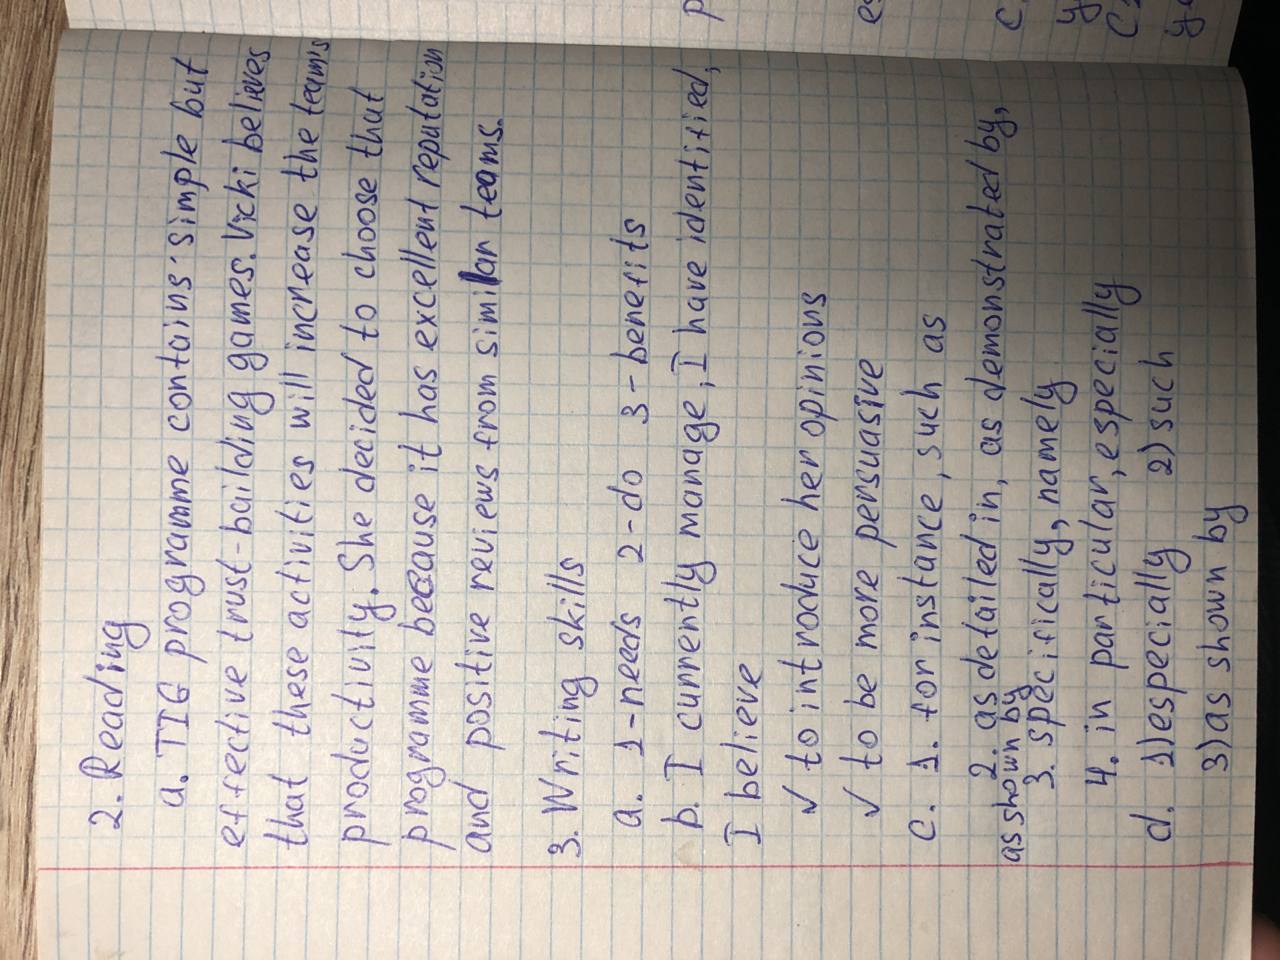 2. Reading
a. TTG programme contains simple but
effective trust-building games. Vicki believes
that these activities will increase the teams
productivity. She decided to choose that
programme because it has excellent reputation
and positive reviews from similar teams.
3. Writing skills
a. 1-needs 2-do 3-benefits
b. I currently manage, I have identified,
I believe
✓ to introduce her opinions
✓ to be more persuasive
c. 1. for instance, such as
2. as detailed in, as demonstrated by,
as shown by
3. specifically, namely
4. in particular, especially
d. 1) especially 2) such
3) as shown by